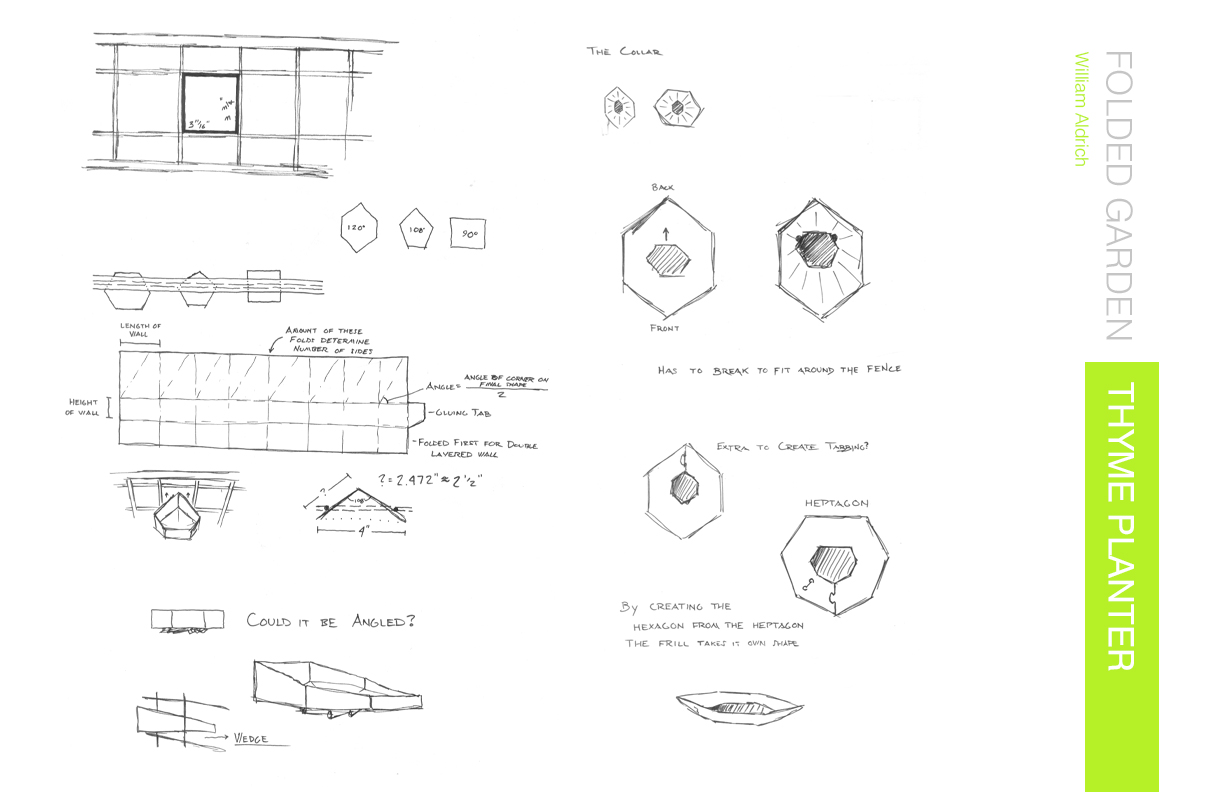 3 11/16"
120°
108°
90°
LENGTH OF
WALL
AMOUNT OF THESE
FOLDS DETERMINE
NUMBER OF SIDES
ANGLE =
ANGLE OF CORNER ON
FINAL SHAPE
2
HEIGHT
OF WALL
-GLUING TAB
-FOLDED FIRST FOR DOUBLE
LAYERED WALL
?
? = 2.472" ≈ 2 1/2"
108°
4"
COULD IT BE ANGLED?
WEDGE
THE COLLAR
BACK
FRONT
HAS TO BREAK TO FIT AROUND THE FENCE
EXTRA TO CREATE TABBING?
HEPTAGON
BY CREATING THE
HEXAGON FROM THE HEPTAGON
THE FRILL TAKES IT OWN SHAPE
FOLDED GARDEN
William Aldrich
THYME PLANTER